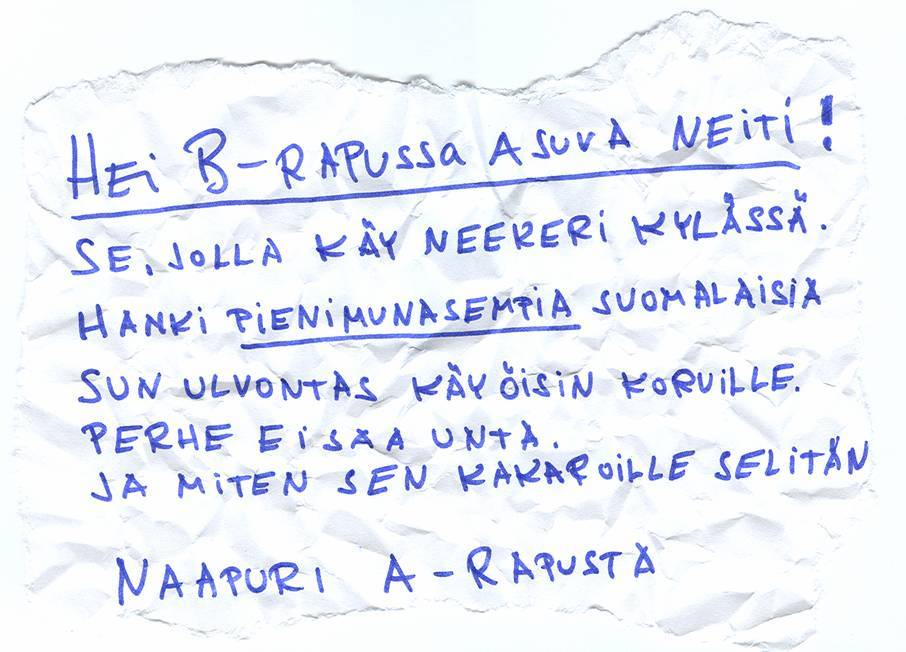 HEi B-RAPUSSa ASUVA NEiTi!
SE, JOLLA KÄY NEEKERI KYLÅSSÄ.
HANKi PIENIMUNASEMPIA SUOMALAISIA
SUN ULVONTAS KÄY ÖISIN KORVILLE.
PERHE Ei SAA UNTA.
JA MITEN SEN KAKAROILLE SELITÄN
NAAPURI A-RAPUSTA